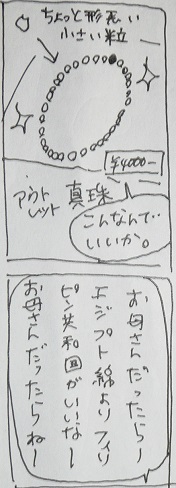 ちょっと形悪い
小さい粒
¥4000-
アウト
レット
真珠
こんなんで…
いいか。
お母さんだったらー
エジプト綿よりフィリ
ピン共和国がいいなー
お母さんだったらねー